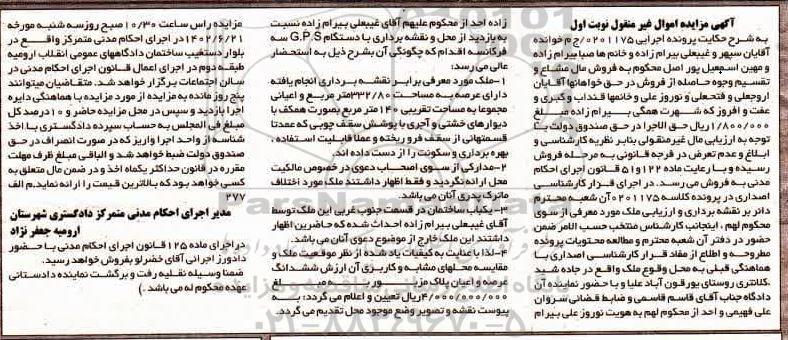 آگهی مزایده اموال غیر منقول نوبت اول
به شرح حکایت پرونده اجرایی ۰۲۰۱۱۷۵/ج م خوانده
آقایان سپهر و غیبعلی بیرام زاده و خانم ها صبا بیرام زاده
و مهین اسمعیل پور اصل محکوم به فروش مال مشاع و
تقسیم وجوه حاصله از فروش در حق خواهانها آقایان
اروجعلی و فتحعلی و نوروز علی و خانمها قنداب و کبری و
عفت و افروز که شهرت همگی بیرام زاده مبلغ
۱/۸۰۰/۰۰۰ریال حق الاجرا در حق صندوق دولت با
توجه به ارزیابی مال غیرمنقولی بنابر نظریه کارشناسی و
ابلاغ و عدم تعرض در فرجه قانونی به مرحله فروش
رسیده و با رعایت ماده ۱۲۲و۵۱ قانون اجرای احکام
مدنی به فروش می رسد. در اجرای قرار کارشناسی
اصداری در پرونده کلاسه ۰۲۰۱۱۷۵ آن شعبه محترم
دائر بر نقشه برداری و ارزیابی ملک مورد معرفی از سوی
محکوم لهم ، اینجانب کارشناس منتخب حسب الامر ضمن
حضور در دفتر آن شعبه محترم و مطالعه محتویات پرونده
مطروحه و اطلاع از مفاد قرار کارشناسی اصداری با
هماهنگی قبلی به محل وقوع ملک واقع در جاده شید
،کلانتری روستای یورقون آباد علیا و با حضور نماینده آن
دادگاه جناب آقای قاسم قاسمی و ضابط قضائی سروان
علی فهیمی و احد از محکوم لهم به هویت نوروز علی بیرام
زاده احد از محکوم علیهم آقای غیبعلی بیرام زاده نسبت
به بازدید از محل و نقشه برداری با دستگاه G.P.S سه
فرکانسه اقدام که چگونگی آن بشرح ذیل به استحضار
عالی می رسد:
۱-ملک مورد معرفی برابر نقشه برداری انجام یافته
دارای عرصه به مساحت ۳۳۲/۸۰متر مربع و اعیانی
مجموعا به مساحت تقریبی ۱۴۰متر مربع بصورت همکف با
دیوارهای خشتی و آجری با پوشش سقف چوبی که عمدتا
قسمتهانی از سقف فرو ریخته و عملا قابلیت استفاده ،
بهره برداری و سکونت را از دست داده اند.
۲-مدارکی از سوی اصحاب دعوی در خصوص مالکیت
محل ارائه نگردید و فقط اظهار داشتند ملک مورد اختلاف
ماترک پدری آنان می باشد.
۳-یکباب ساختمان در قسمت جنوب غربی این ملک توسط
آقای غیبعلی بیرام زاده احداث شده که حاضرین اظهار
داشتند این ملک خارج از موضوع دعوی آنان می باشد.
۴-لذا با عنایت به کیفیات یاد شده از نظر موقعیت ملک و
مقایسه محلهای مشابه و کاربری آن ارزش ششدانگ
عرصه و اعیان پلاک مزبور به مبلغ
۴/۰۰۰/۰۰۰/۰۰۰ریال تعیین و اعلام می گردد: به
پیوست نقشه و تصویر وضع موجود محل تقدیم می گردد.
مزایده راس ساعت ۱۰/۳۰ صبح روز سه شنبه مورخه
۱۴۰۲/۶/۲۱ در اجرای احکام مدنی متمرکز واقع در
بلوار دستغیب ساختمان دادگاههای عمومی انقلاب ارومیه
طبقه دوم در اجرای اعمال قانون اجرای احکام مدنی در
سالن اجتماعات برگزار خواهد شد. متقاضیان میتوانند
پنج روز مانده به مزایده از مورد مزایده با هماهنگی دایره
اجرا بازدید و سپس در محل مزایده حاضر و ۱۰درصد کل
مبلغ فی المجلس به حساب سپرده دادگستری با اخذ
شناسه از واحد اجرا واریز که در صورت انصراف در حق
صندوق دولت ضبط خواهد شد و الباقی مبلغ ظرف مهلت
مقرره در قانون حداکثر یکماه اخذ و در ضمن مال متعلق به
کسی خواهد بود که بالاترین قیمت را ارائه نمایدم الف
۲۷۷
مدیر اجرای احکام مدنی متمرکز دادگستری شهرستان
ارومیه جعفر نژاد
در اجرای ماده ۱۲۵ قانون اجرای احکام مدنی با حضور
دادورز اجرائی آقای خضرلو بفروش خواهد رسید.
ضمنا وسیله نقلیه رفت و برگشت نماینده دادستانی
عهده محکوم له می باشد .)
ParsNamadData
۰۲۱-۸۸۳۴۹۶۷۰-۵